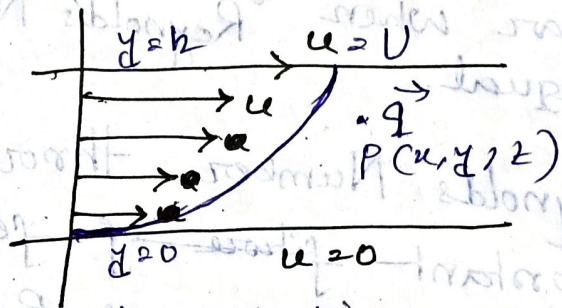 y=h u=U
u
. q⃗
P(x,y,z)
y=0 u=0